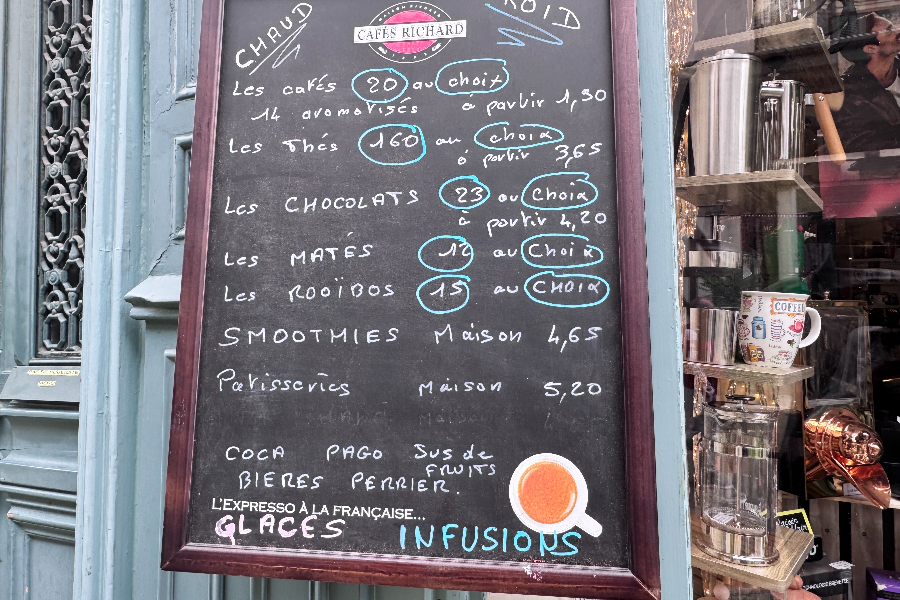 CHAUD
CAFÉS RICHARD
Les cafés 20 au choix
14 aromatisés à partir 1,30
Les Thés 160 au choix
à partir 3,65
Les CHOCOLATS 23 au Choix
à partir 4,20
Les MATÉS 12 au Choix
Les ROOÏBOS 15 au CHOIX
SMOOTHIES Maison 4,65
Patisseries Maison 5,20
COCA PAGO Jus de FRUITS
BIERES PERRIER.
L'EXPRESSO À LA FRANÇAISE...
GLACES INFUSIONS
COFFEE